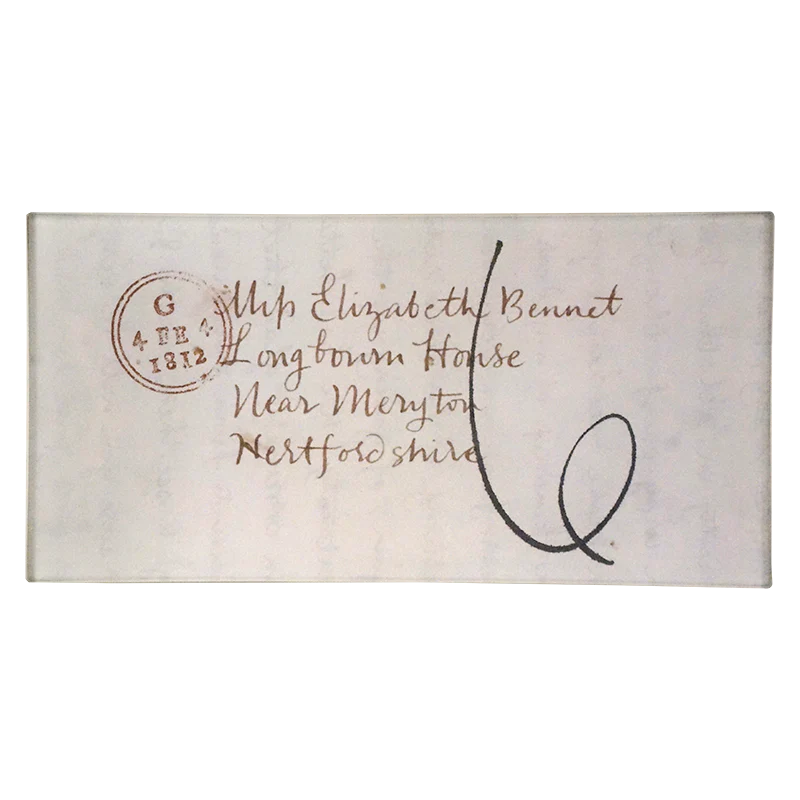 G
4 FE 4
1812
Miſs Elizabeth Bennet
Longbourn House
Near Meryton
Hertfordshire
6